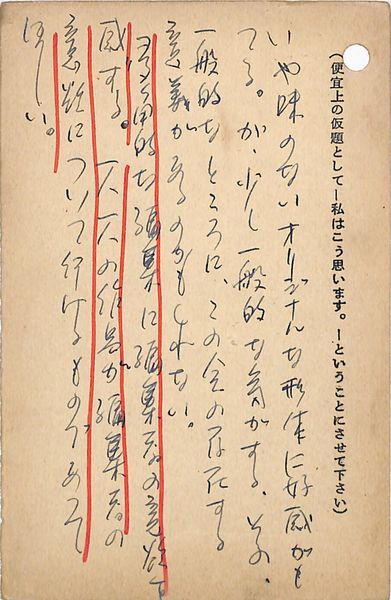 (便宜上の仮題として―私はこう思います。―ということにさせて下さい)
いや味のないオリジナルな形体に好感がも
てる。が、少し一般的な気がする、その、
一般的なところに、この会の存在する
意義があるのかもしれない。
的な編集に編集者の意欲を
感ずる。一人一人の作品が編集者の
意欲について行けるものであって
ほしい。